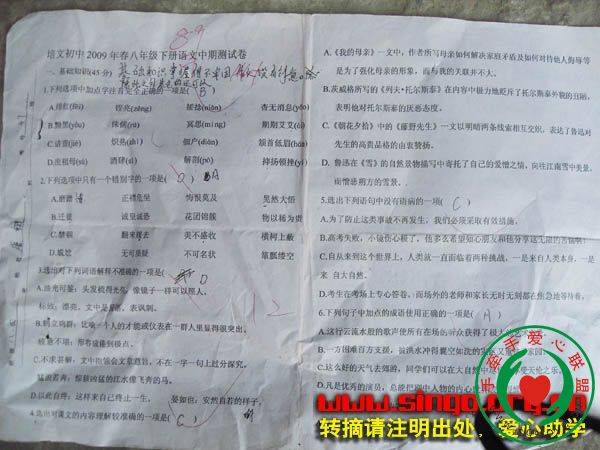 89
培文初中2009年春八年级下册语文中期测试卷
一、基础知识(45分)
1.下列选项中加点字注音完全正确的一项是( B )
A.绯红(fēi) 姓尧(zāng) 搓捻(niǎn) 杳无消息(yǎo)
B.黝黑(yǒu) 侏儒(rú) 冥思(míng) 期期艾艾(ài)
C.诘责(jié) 炽热(zhì) 佃户(diàn) 颔首低眉(hàn)
D.庶祖母(shù) 酒肆(sì) 解剖(pō) 禅扬领挫(yì)
2.下列选项中只有一个错别字的一项是( ) A
A.磨蹭 正襟危坐 悔恨莫及 昊然大悟
B.迁徙 诚皇诚恐 花团锦簇 物以稀为贵
C.禁锢 翻来覆去 美不盛收 横柯上蔽
D.尴尬 无可质疑 不可名状 箪瓢缕空
3.选出对下列词语解释不准确的一项是( ) D
A.油光可鉴：头发梳得光亮，像镜子一样可以照人。
标致：漂亮。文中是反语，表讽刺。
B.鹤立鸡群：比喻一个人的才能或仪表在一群人里显得很突出。
粗制不堪：形容痛楚到极点。
C.不求甚解：文中指领会文章题旨，不在一字一句上过分探究。
猛浪若奔：惊骇凶猛的江水像飞奔的马。
D.以此自终：这样来自己终止一生。 晏如也：安然自若的样子。
4.选出对课文的内容理解较准确的一项是( C )
A.《我的母亲》一文中，作者所写母亲如何解决家庭矛盾及如何对待他人侮辱等
是为了强化母亲的形象，而与我的关联并不大。
B.茨威格所写的《列夫·托尔斯泰》在内容中极力地贬斥了托尔斯泰外貌的丑陋，
表明他对托尔斯泰的厌恶态度。
C.《朝花夕拾》中的《藤野先生》一文以明暗两条线索相互交织，表达了鲁迅对
先生的高贵品格的由衷赞扬。
D. 鲁迅在《雪》的自然景物描写中寄托了自己的爱憎之情，向往江南雪中美景，
而憎恶朔方的雪景.
5.选出下列语句中没有语病的一项( C )
A.为了防止这类事故不再发生，我们必须采取有效措施。
B.高考失败，小强伤心极了，他多么希望知心朋友和他分享这无限的苦恼啊!
C.自从来到这个世界上，人类就一直面临着两种挑战，一是来自人类本身，一是
来 自大自然.
D.考生在考场上专心答卷，而场外的老师和家长无时无刻都在焦急地等待着。
6.下列句子中加点的成语使用正确的一项( A )
A.这行云流水般的歌声使所有在场听众获得了极大的
B.一方困难百方支援，被洪水冲得囊空如洗的灾区
C.这么好的天气去郊游，同学们可以在大自然中享受天伦之乐
D.凡是优秀的演员，总能把剧中人物的内心
手牵手爱心联盟
www.singo.org.cn
转摘请注明出处，爱心助学